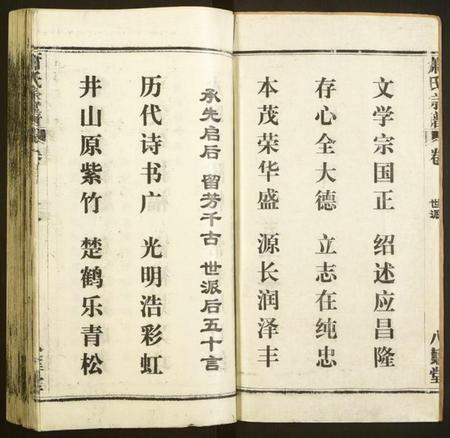 氏宗譜 卷 世派 八 堂
文学宗国正 绍述应昌隆
存心全大德 立志在纯忠
本茂荣华盛 源长润泽丰
承先启后 留芳千古 世派后五十言
历代诗书广 光明浩彩虹
井山原紫竹 楚鹤乐青松